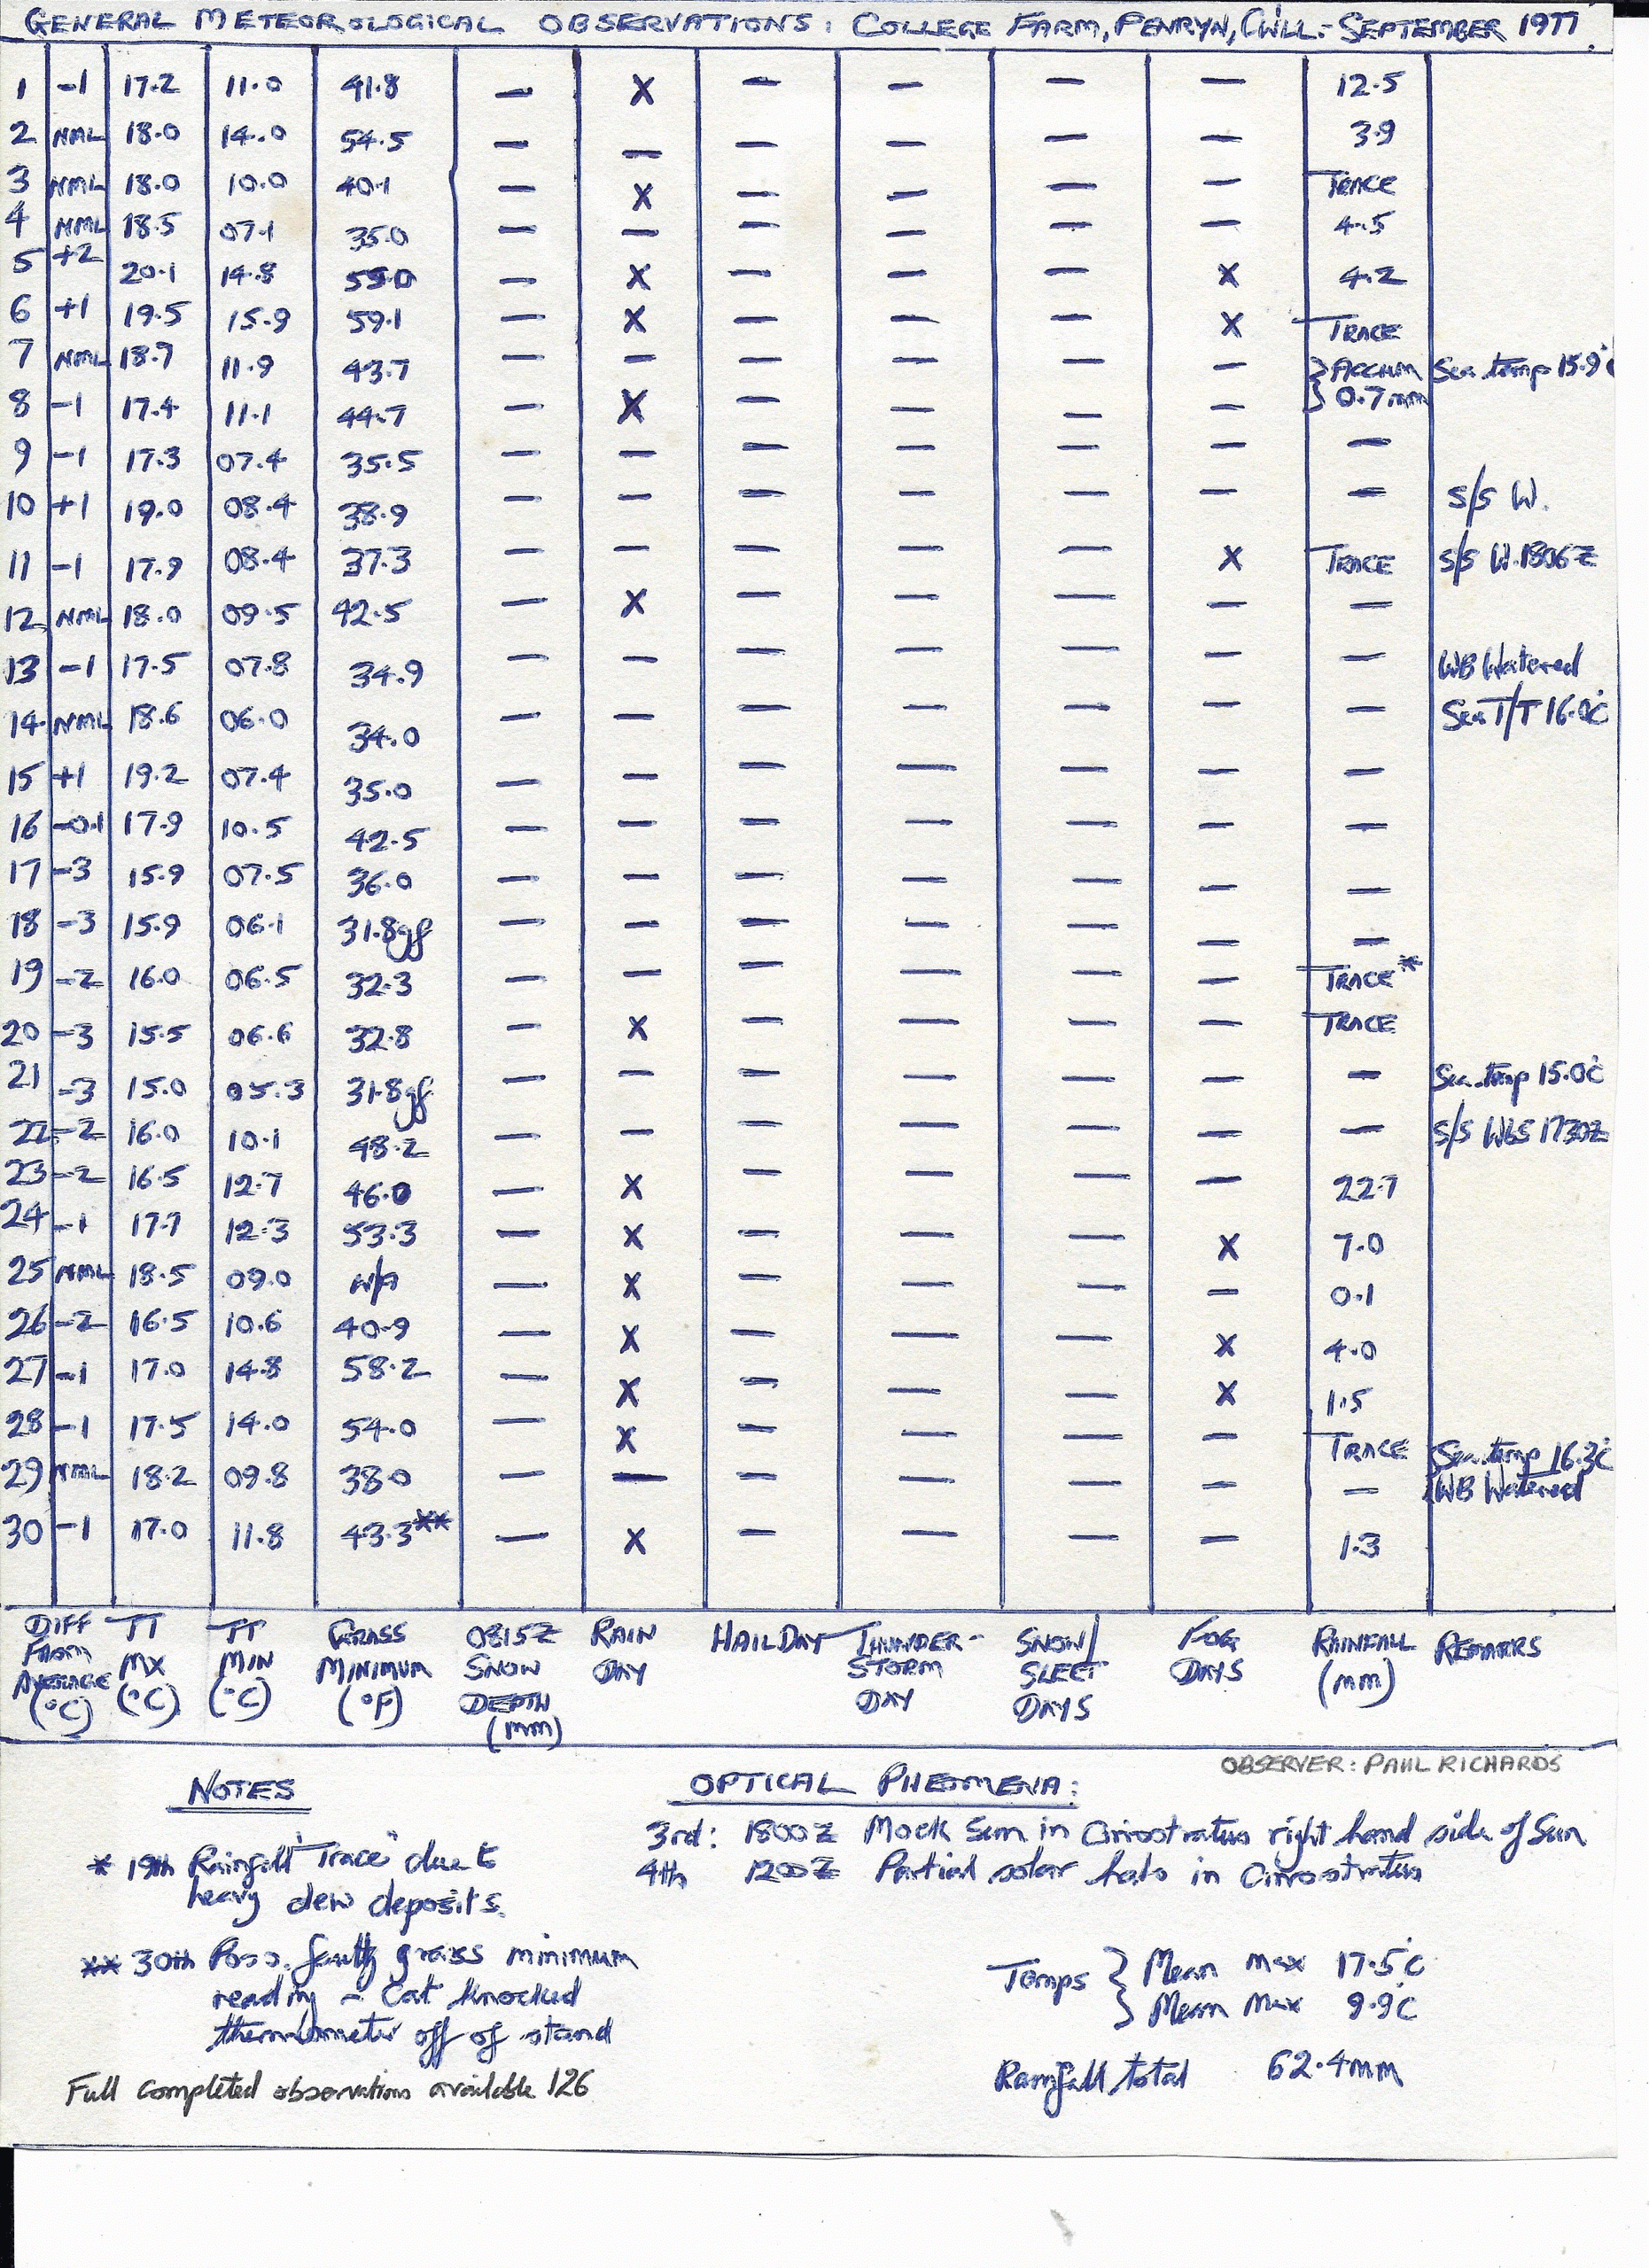 GENERAL METEOROLOGICAL OBSERVATIONS: COLLEGE FARM, PENRYN, C'WLL:- SEPTEMBER 1977
1 -1 17.2 11.0 41.8 — X — — — — 12.5
2 NML 18.0 14.0 54.5 — — — — — — 3.9
3 NML 18.0 10.0 40.1 — X — — — — TRACE
4 NML 18.5 07.1 35.0 — — — — — — 4.5
5 +2 20.1 14.8 55.0 — X — — — X 4.2
6 +1 19.5 15.9 59.1 — X — — — X TRACE
7 NML 18.7 11.9 43.7 — — — — — — } ACCUM Sea temp 15.9°C
8 -1 17.4 11.1 44.7 — X — — — — } 0.7mm
9 -1 17.3 07.4 35.5 — — — — — — —
10 +1 19.0 08.4 38.9 — — — — — — — S/S W.
11 -1 17.9 08.4 37.3 — — — — — X TRACE S/S W.1806Z
12 NML 18.0 09.5 42.5 — X — — — — —
13 -1 17.5 07.8 34.9 — — — — — — — WB Watered
14 NML 18.6 06.0 34.0 — — — — — — — Sea T/T 16.0°C
15 +1 19.2 07.4 35.0 — — — — — — —
16 -0.1 17.9 10.5 42.5 — — — — — — —
17 -3 15.9 07.5 36.0 — — — — — — —
18 -3 15.9 06.1 31.8gf — — — — — — —
19 -2 16.0 06.5 32.3 — — — — — — TRACE*
20 -3 15.5 06.6 32.8 — X — — — — TRACE
21 -3 15.0 05.3 31.8gf — — — — — — — Sea temp 15.0°C
22 -2 16.0 10.1 48.2 — — — — — — — S/S WbS 1730Z
23 -2 16.5 12.7 46.0 — X — — — — 22.7
24 -1 17.7 12.3 53.3 — X — — — X 7.0
25 NML 18.5 09.0 N/A — X — — — — 0.1
26 -2 16.5 10.6 40.9 — X — — — X 4.0
27 -1 17.0 14.8 58.2 — X — — — X 1.5
28 -1 17.5 14.0 54.0 — X — — — — TRACE Sea temp 16.3°C
29 NML 18.2 09.8 38.0 — — — — — — — WB Watered
30 -1 17.0 11.8 43.3** — X — — — — 1.3
DIFF FROM AVERAGE (°C) TT MX (°C) TT MIN (°C) GRASS MINIMUM (°F) 0815Z SNOW DEPTH (mm) RAIN DAY HAIL DAY THUNDER-STORM DAY SNOW/SLEET DAYS FOG DAYS RAINFALL (mm) REMARKS
OBSERVER: PAUL RICHARDS
NOTES
* 19th Rainfall "Trace" due to
heavy dew deposits.
** 30th Poss. faulty grass minimum
reading - Cat knocked
thermometer off of stand
Full completed observations available 126
OPTICAL PHEOMENA:
3rd: 1800Z Mock Sun in Cirrostratus right hand side of Sun
4th 1200Z Partial solar halo in Cirrostratus
Temps } Mean max 17.5°C
} Mean Max 9.9°C
Rainfall total 62.4mm